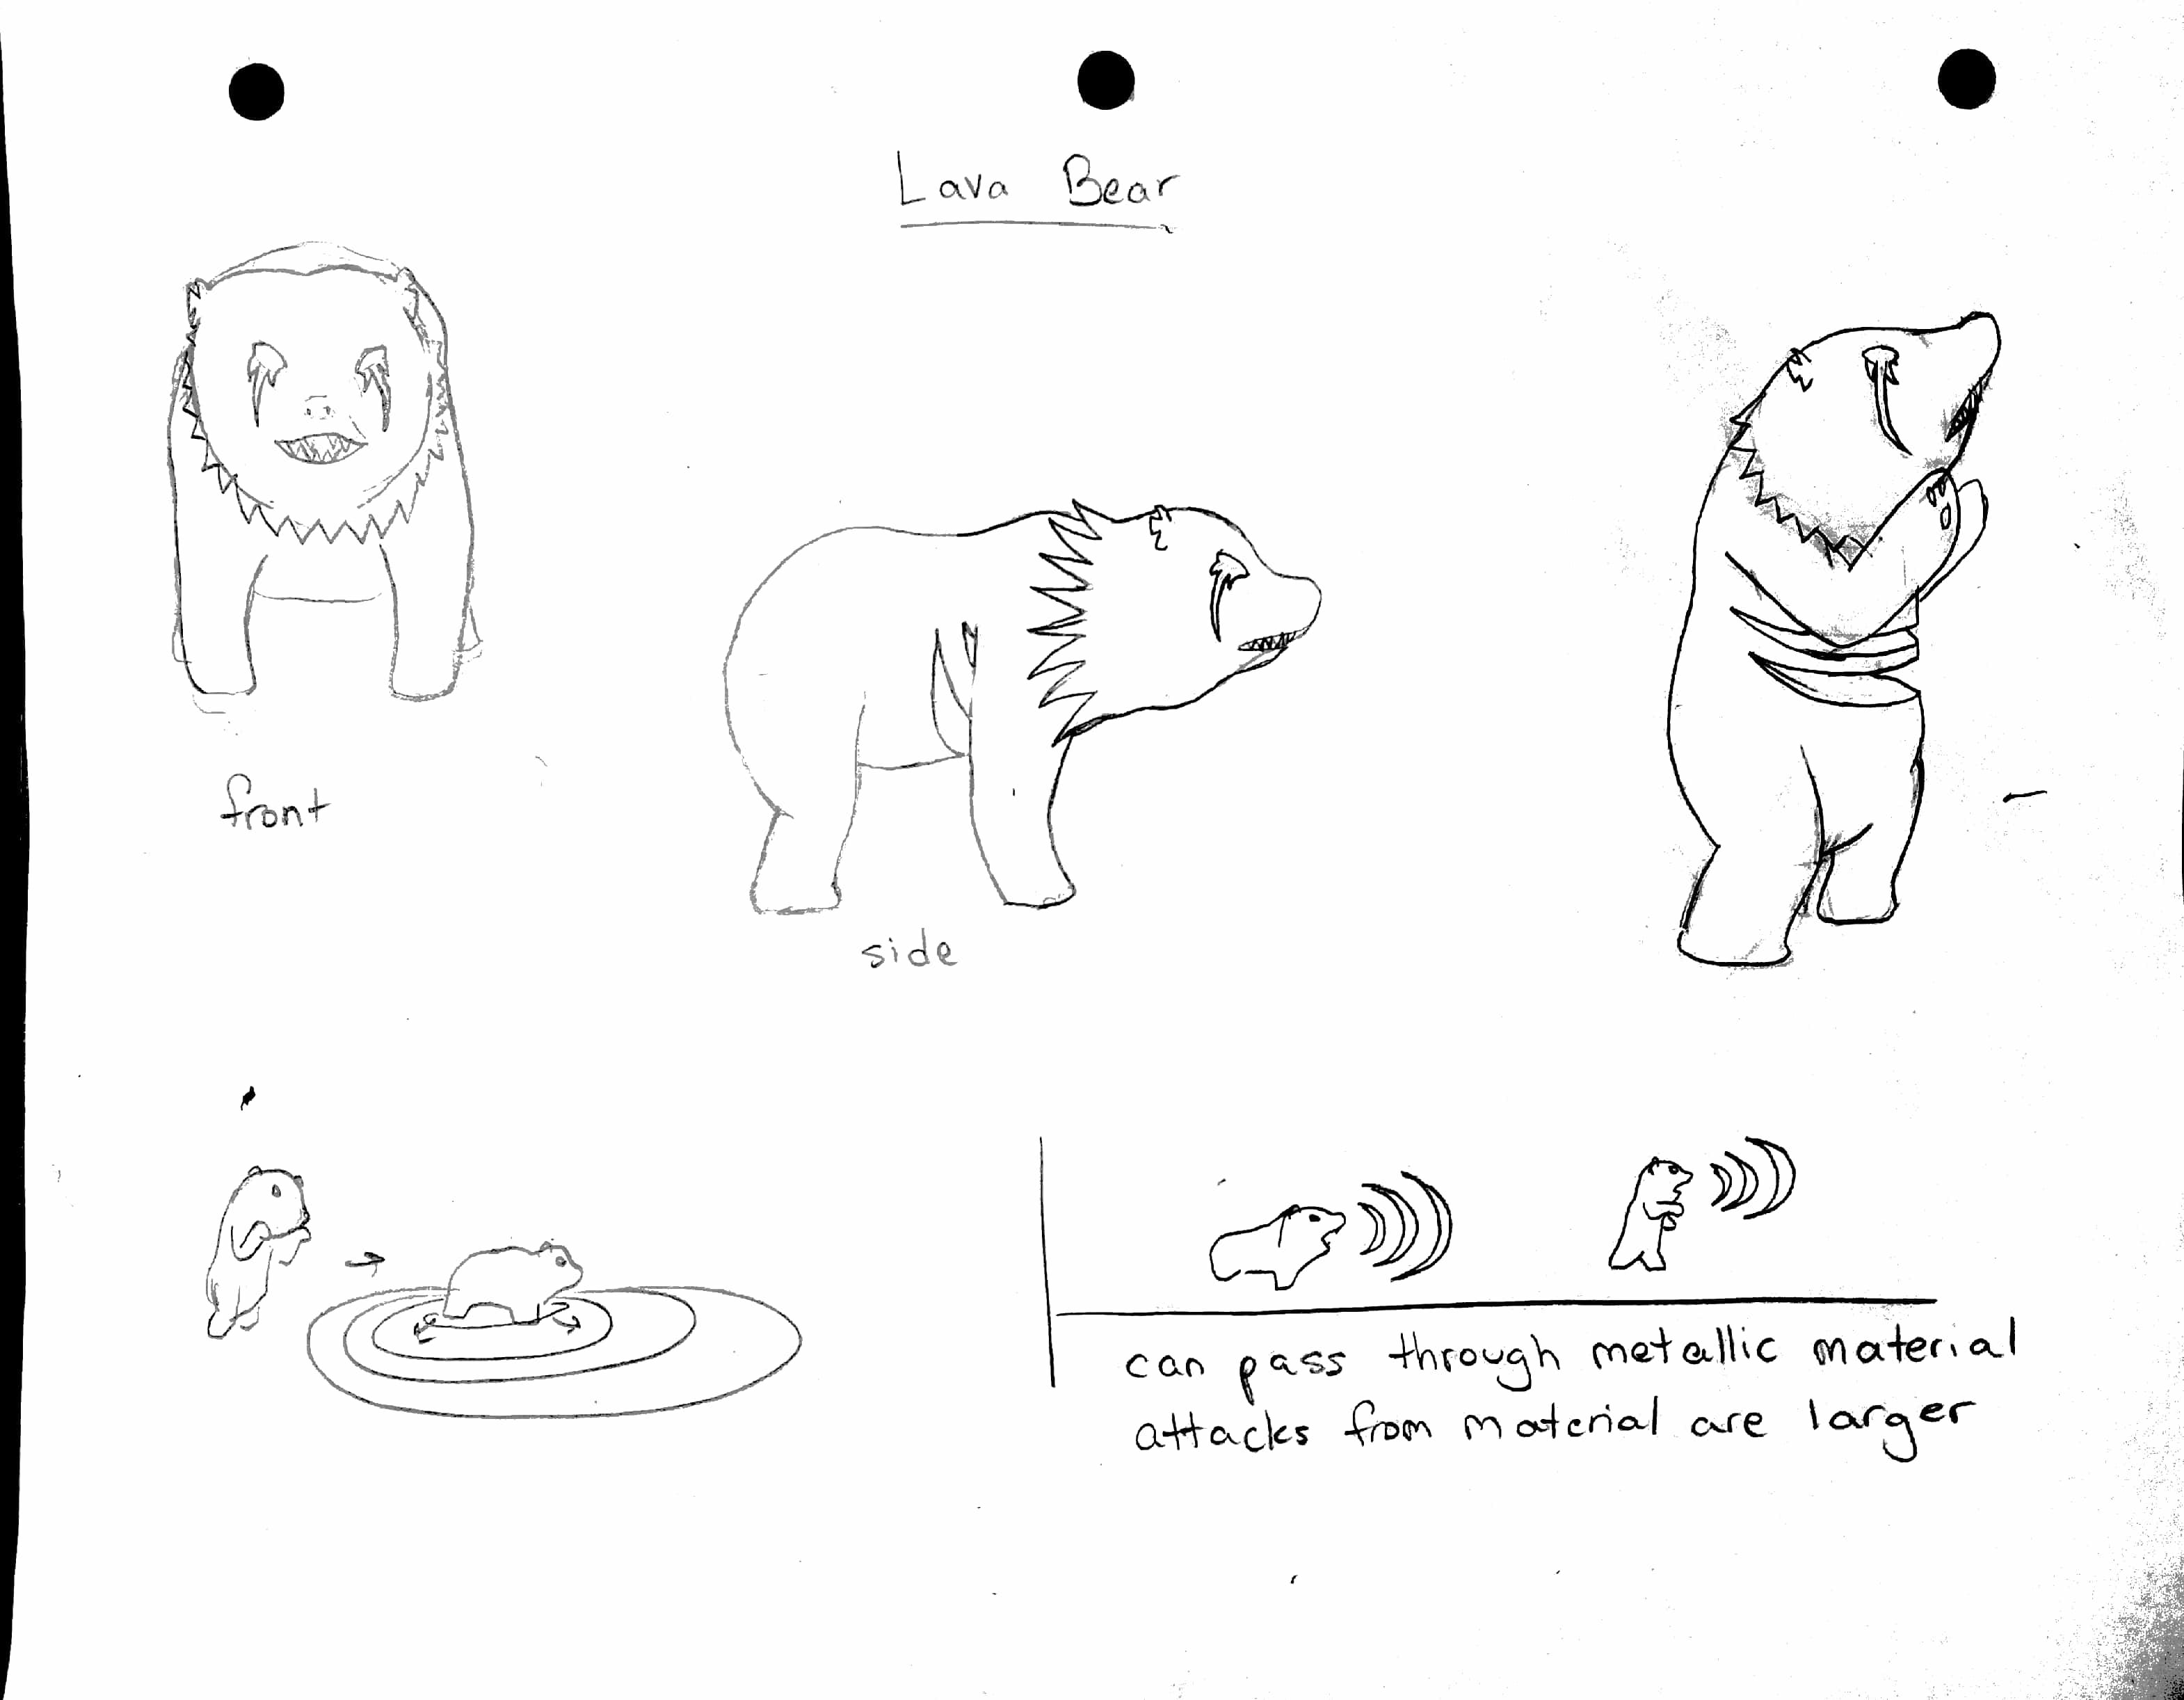 Lava Bear
front
side
can pass through metallic material
attacks from material are larger